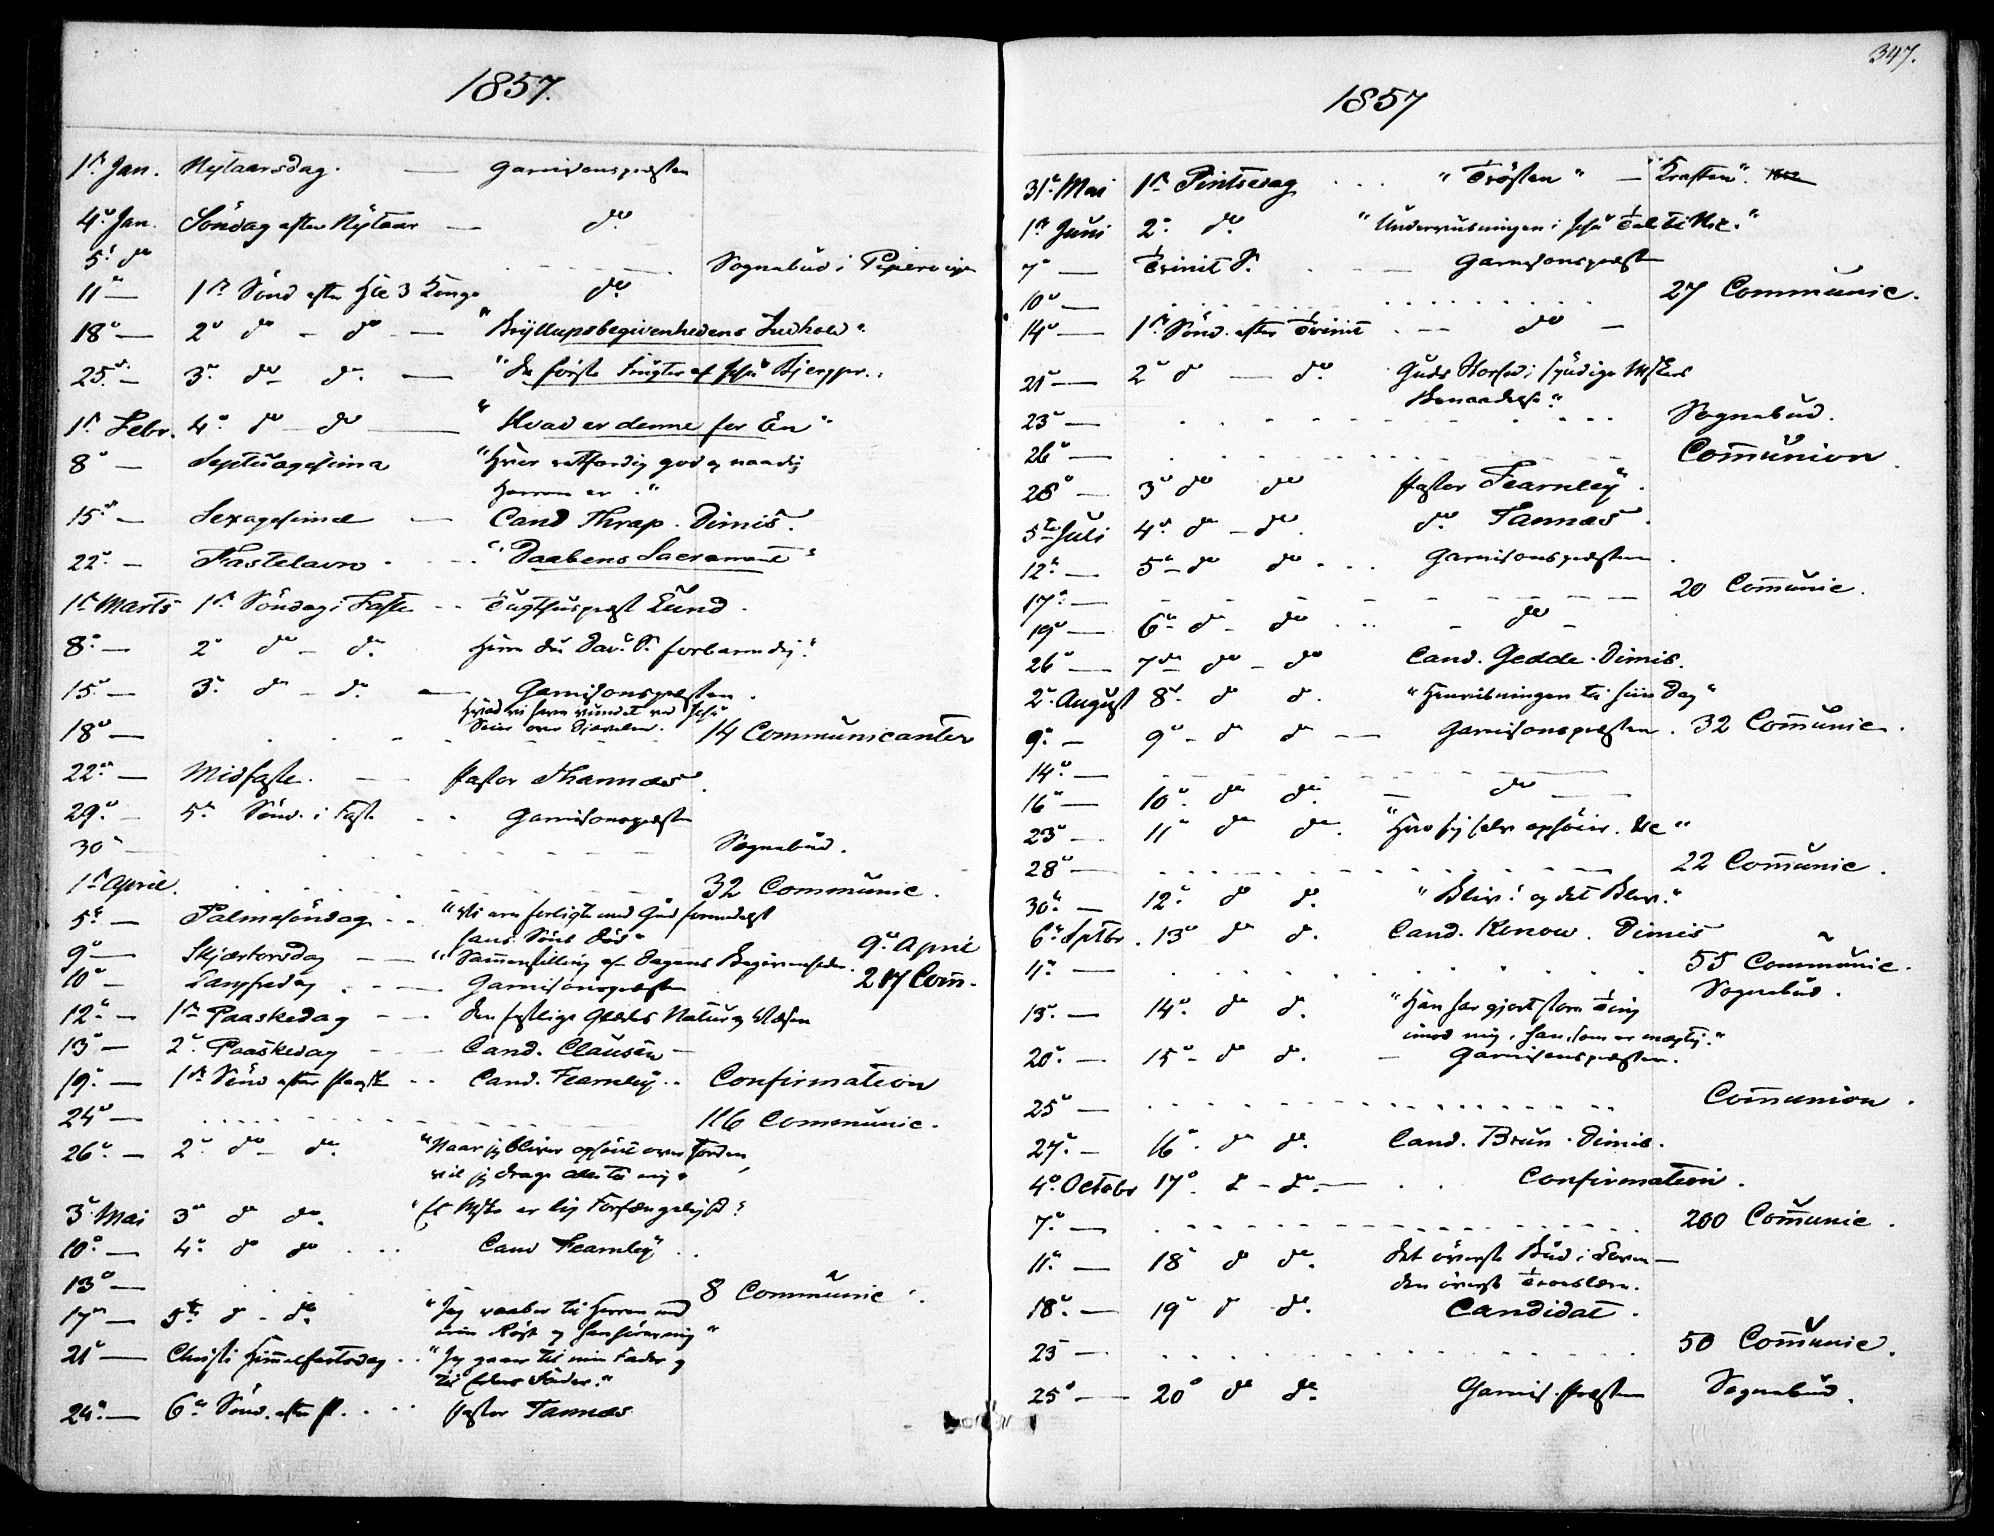 1857.
1ste Jan. Nytaarsdag. — Garnisonspræsten
4de Jan. Söndag efter Nytaar — do
5te do Sognebud i Pipervigen
11te — 1ste Sönd efter Hle 3 Konge do
18de — 2de do - do — "Bryllupsbegivenhedens Indhold".
25de — 3de do - do. — "De förste Frugter af Jesu Bjergpr.
1ste Febr. 4de do - do — "Hvad er denne for En"
8de — Septuagesima "Hvor retfærdig god og naadig
Herren er."
15de — Sexagesima — Cand Thrap. Dimis.
22de — Fastelavn - - "Daabens Sacrament"
1ste Marts 1ste Söndag i Faste - - Tugthuspræst Lund.
8de — 2de do - do. Herre du Dav. S. forbarm dig."
15de — 3de do - do. — Garnisonspræsten.
Hvad vi have vundet ved Jesu
Seier over Djævelen.
18de — 14 Communicanter
22de — Midfaste. — Pastor Thannæs.
29de — 5te Sönd. i Faste - - Garnisonspræsten
30te — Sognebud.
1ste April. 32 Communic.
5te — Palmesöndag - - "Vi ere forligte med Gud formedelst
hans Söns Död"
9de — Skjærtorsdag — "Sammenstilling af Dagens Begivenheder. 9de April
10de — Langfredag - - Garnisonspræsten 217 Com.
12te — 1ste Paaskedag — Den festlige Glædes Natur og Væsen
13de — 2de Paaskedag — Cand. Clausen —
19de — 1ste Sönd efter Paaske - - Cand. Fearnley - - Confirmation
24de — 116 Communic.
26de — 2de do - do. "Naar jeg bliver ophöiet over Jorden,
vil jeg drage alle til mig"
3de Mai 3de do do. "Et Msk er lig Forfængelighed"
10de — 4de do do - - Cand Fearnley - -
13de — 8 Communic.
17de — 5te do - do. "Jeg raaber til Herren med
min Röst og han hörer mig"
21de — Christi Himmelfartsdag - - "Jeg gaaer til min Fader og
til Eders Fader."
24de — 6te Sönd. efter P. - - Pastor Tannæs
347.
1857
31te Mai 1ste Pintsedag - - - "Trösten" — "Kraften".
1ste Juni 2de do. "Underviisningen i Jesu Tale til Nic."
7de — Trinit S. - - — Garnisonspræsten
10de — 27 Communic.
14de — 1ste Sönd. efter Trinit - — do —
21de — 2de do — do. Guds Storhed i syndige Mskers
Benaadelse."
23de — Sognebud.
26de — Communion.
28de — 3de do do Pastor Fearnley.
5te Juli 4de do - do. do. Tannæs.
12te — 5te do do. - - Garnisonspræsten.
17de — 20 Communic.
19de — 6te do - do - - - do -
26de — 7de do - do Cand. Gedde. Dimis.
2de August 8de do do. "Henviisningen til hiin Dag"
9de — 9de - do do — Garnisonspræsten. 32 Communic.
14de —
16de — 10de do do. — do —
23de — 11te do do. "Hvo sig selv ophöier. &c"
28de — 22 Communic.
30te — 12te do do. "Bliv! og det Blev."
6te Septbr. 13de do do. Cand. Konow. Dimis
11te — 55 Communic.
Sognebud.
13de — 14de do do. "Han har gjort store Ting
imod mig, han, som er mægtig."
20de — 15de - do do. — Garnisonspræsten.
25de — Communion.
27de — 16de do do. Cand. Brun. Dimis.
4de Octobr 17de do - do. — - - Confirmation.
7de — 200 Communic.
11te — 18de do do. Det överste Bud i Loven —
den överste Troeslære.
18de — 19de do - do. Candidat.
23de — 50 Communic.
25de — 20de do do. Garnis. Præsten Sognebud.